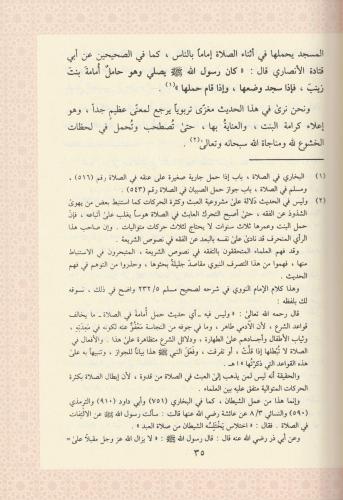 المسجد يحملها في أثناء الصلاة إماماً بالناس ، كما في الصحيحين عن أبي
قتادة الأنصاري قال : « كان رسول الله ﷺ يصلي وهو حاملٌ أُمامةَ بنتَ
زينبَ ، فإذا سجد وضعها ، وإذا قام حملها »(١) .
ونحن نرىٰ في هذا الحديث مغزًى تربوياً يرجع لمعنًى عظيم جداً ، وهو
إعلاء كرامة البنت ، والعنايةُ بها ، حتىٰ تُصطحب وتُحمل في لحظات
الخشوع لله ومناجاة الله سبحانه وتعالىٰ(٢) .
(١) البخاري في الصلاة ، باب إذا حمل جارية صغيرة على عنقه في الصلاة رقم (٥١٦) ،
ومسلم في الصلاة ، باب جواز حمل الصبيان في الصلاة رقم (٥٤٣) .
(٢) وليس في الحديث دلالة علىٰ مشروعية العبث وكثرة الحركات كما استنبط بعض من يهوىٰ
الشذوذ عن الفقه ، حتىٰ أصبح التحرك العابث في الصلاة هوساً يغلب علىٰ أتباعه ، فإنّ
حمل البنت وعمرها ثلاث سنوات لا يحتاج لثلاث حركات متواليات . وإن صاحب هذا
الرأي المنحرف قد نادىٰ علىٰ نفسه بالبعد عن الفقه في نصوص الشريعة .
وقد فهم العلماء المتحققون بالتفقه في نصوص الشريعة ، المتبحرون في الاستنباط
منها ، فهموا من هذا التصرف النبوي مقاصدَ جليلةً بحثوها ، وحذروا من التوهم في فهم
الحديث .
وهذا كلام الإمام النووي في شرحه لصحيح مسلم ٢٣٢/٥ واضح في ذلك ، نسوقه
لك بلفظه :
قال رحمه الله تعالىٰ : « وليس فيه ـ أي حديث حمل أُمامةَ في الصلاة ـ ما يخالف
قواعد الشرع ، لأن الآدمي طاهر ، وما في جوفه من النجاسة مَعْفُوٌّ عنه لكونه في مَعِدَتِهِ ،
وثياب الأطفال وأجسادهم على الطهارة ، ودلائل الشرع متظاهرة علىٰ هذا . والأفعال في
الصلاة لا تُبطلها إذا قلَّتْ ، أو تفرقت ، وفَعَلَ النبي ﷺ هذا بياناً للجواز ، وتنبيهاً به علىٰ
هذه القواعد التي ذكرْتُها » اهـ .
والحقيقة أنه ليس لمن يذهب إلى العبث في الصلاة من قدوة ، لأن إبطال الصلاة بكثرة
الحركات المتوالية متفق عليه بين العلماء .
وإنما هذا من عمل الشيطان ، كما في البخاري (٧٥١) وأبي داود (٩١٠) والترمذي
(٥٩٠) والنسائي ٨/٣ عن عائشة رضي الله عنها قالت : سألت رسول الله ﷺ عن الالتفات
في الصلاة . فقال : « اختلاس يَخْتَلِسُه الشيطان من صلاة العبد » .
وعن أبي ذر رضي الله عنه قال : قال رسول الله ﷺ : « لا يزال الله عز وجل مقبلاً علىٰ =
٣٥